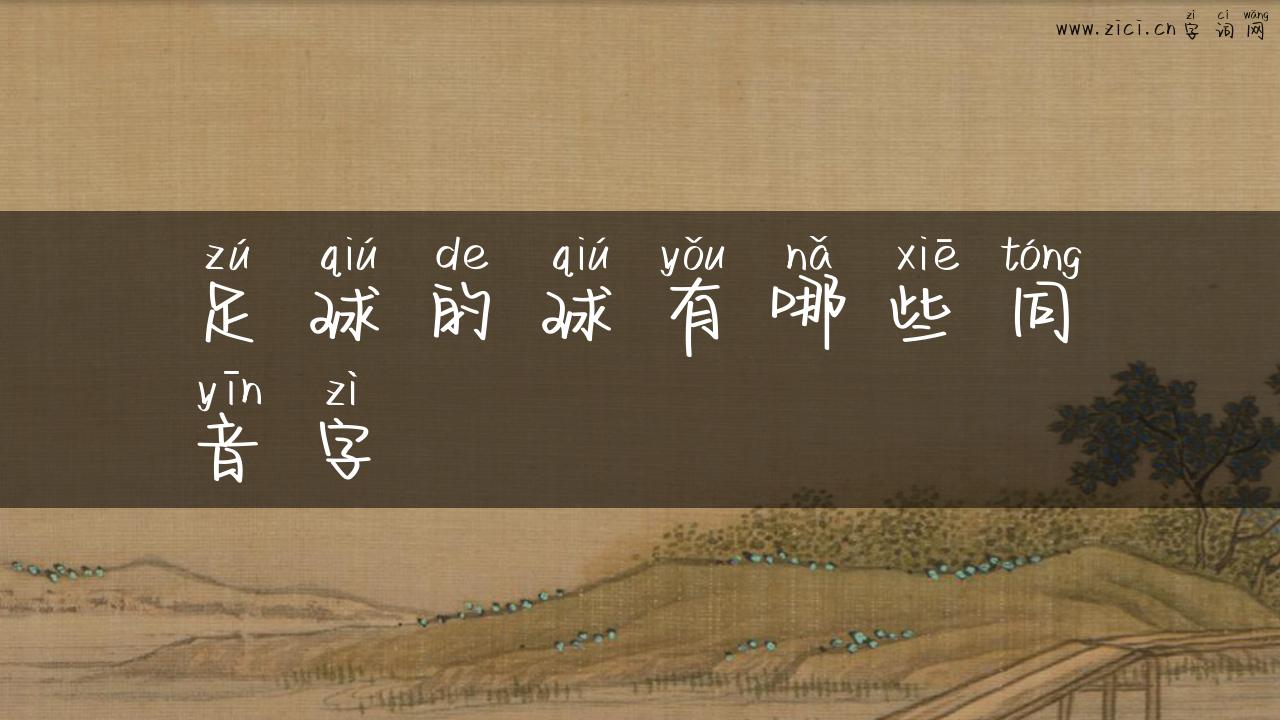 zì cí wǎng
www.zici.cn字词网
zú qiú de qiú yǒu nǎ xiē tóng
足球的球有哪些同
yīn zì
音字